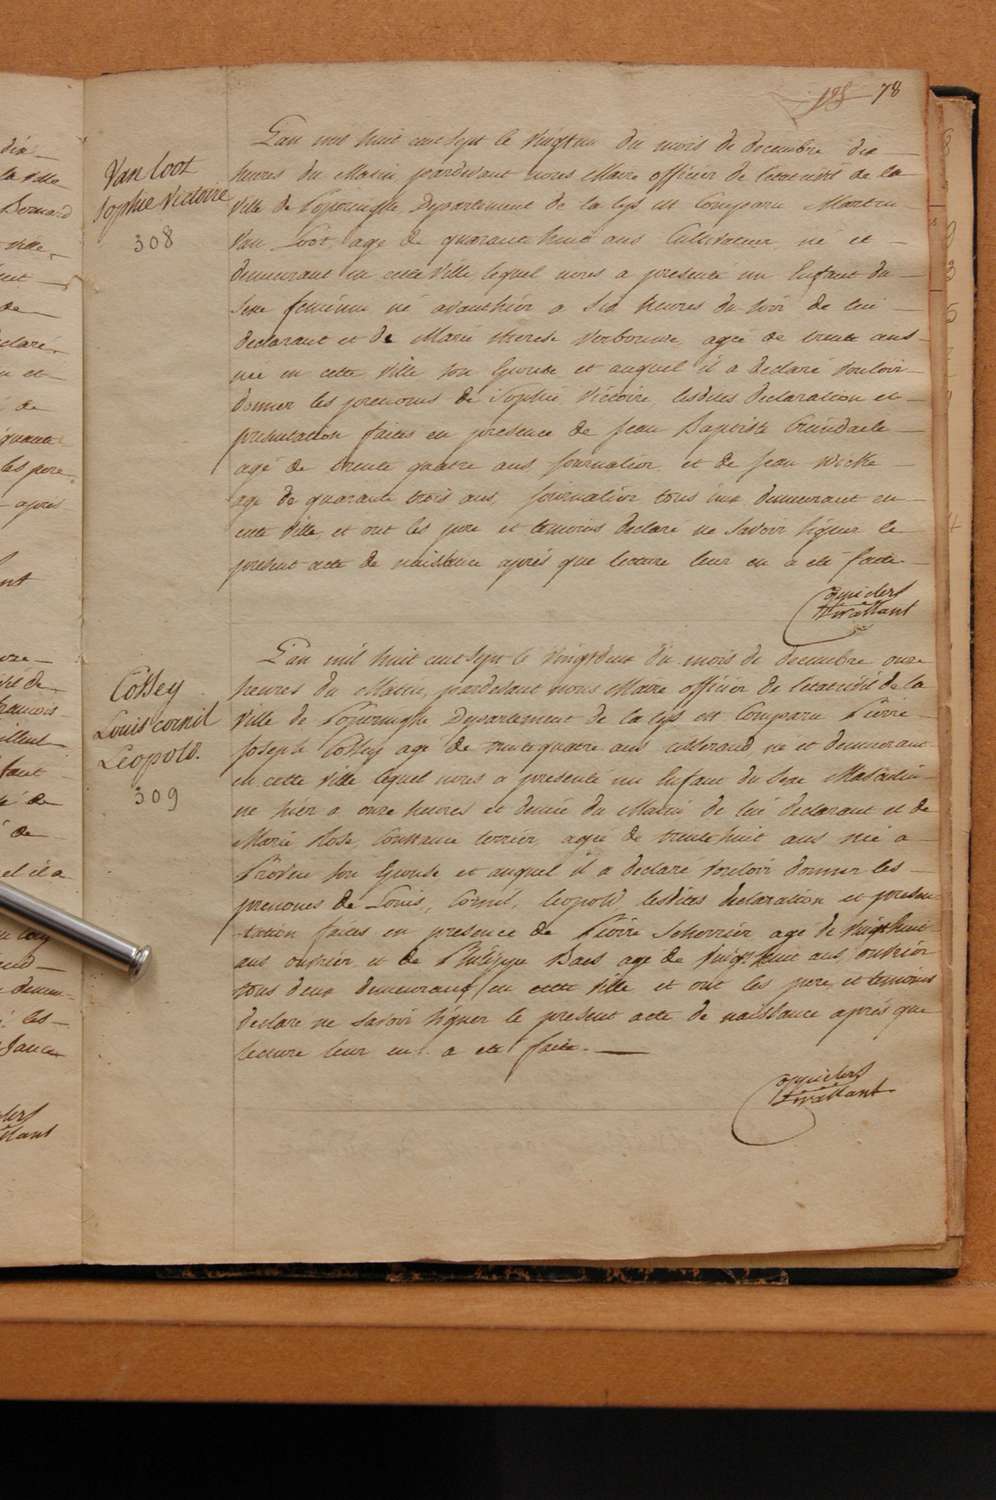 78
Van Loot
Sophie Victoire
308
L'an mil huit cent sept le vingt un du mois de decembre dix
heures du Matin, pardevant nous Maire officier de l'etat civil de la
Ville de Poperinghe Departement de la Lys est Comparu Martin
Van Loot, agé de quarante huit ans Cultivateur né et
demeurant en cette Ville lequel nous a presenté un Enfant du
Sexe feminin né avanthier a Six heures du soir de lui
declarant et de Marie therese Verbouwe, agée de trente ans
née en cette Ville son Epouse et auquel il a declaré vouloir
donner les prenoms de Sophie Victoire, lesdites declaration et
presentation faites en presence de Jean Baptiste
agé de trente quatre ans journalier, et de Jean
age de quarante trois ans, journalier tous deux demeurant en
cette Ville, et ont les pere et temoins declare ne savoir signer le
present acte de naissance après que lecture leur en a eté faite
Cossey
Louis Cornil
Leopold.
309
L'an mil huit cent sept le vingtdeux du mois de decembre onze
heures du Matin, pardevant nous Maire officier de l'etat civil de la
Ville de Poperinghe Departement de la Lys est Comparu Pierre
Joseph Cossey agé de trente quatre ans né et demeurant
en cette Ville lequel nous a presenté un Enfant du Sexe Masculin
né hier a onze heures et demie du Matin de lui declarant et de
Marie Rose Constance terrier, agée de trente huit ans née a
Proven son Epouse et auquel il a declaré vouloir donner les
prenoms de Louis, Cornil, Leopold, lesdites declaration et presen
-tation faites en presence de Pierre Scherrier agé de vingt huit
ans ouvrier et de Philippe Baes agé de vingt huit ans ouvrier
tous deux demeurant en cette Ville et ont les pere et temoins
declare ne savoir signer le present acte de naissance après que
lecture leur en a eté faite.